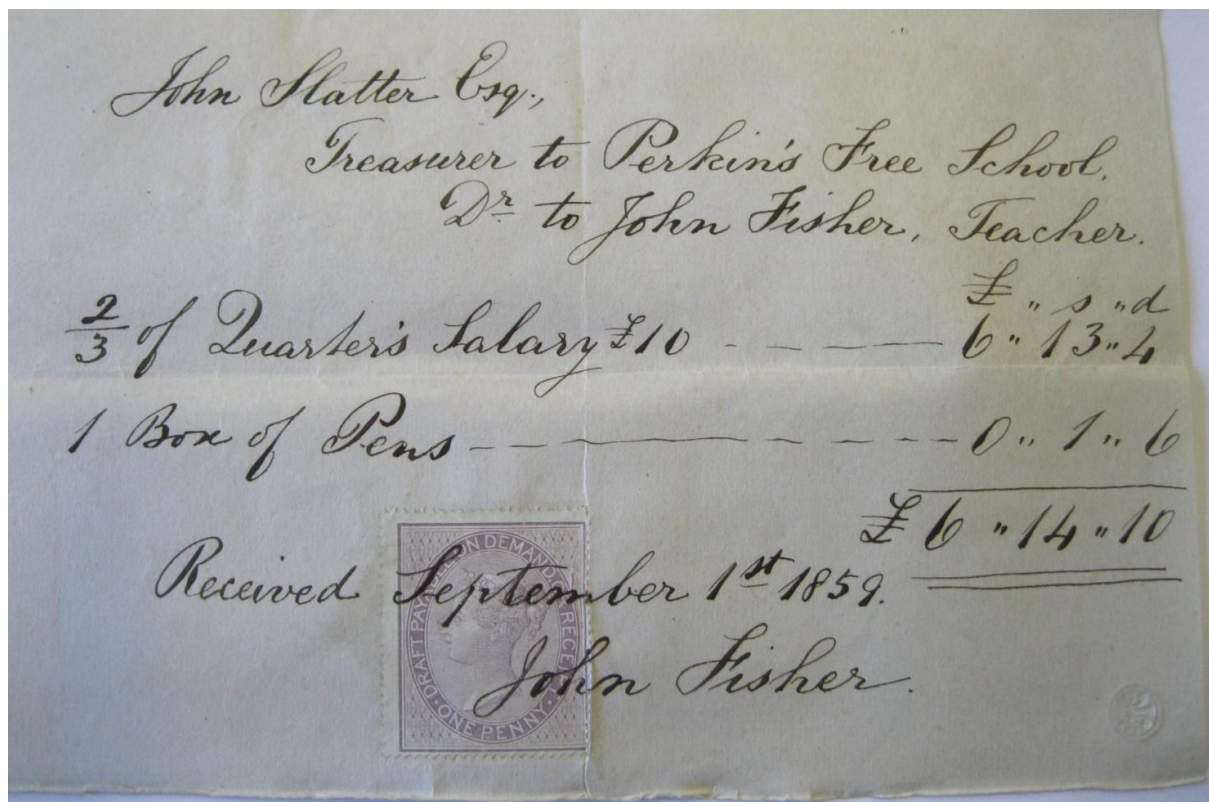 John Slatter Esq.,
Treasurer to Perkin's Free School.
Dr to John Fisher, Teacher.
£ " s " d
2/3 of Quarter's Salary £10 - - - - - 6 " 13 " 4
1 Box of Pens - - - - - - - - 0 " 1 " 6
£ 6 " 14 " 10
Received September 1st 1859.
John Fisher.
DRAFT PAYABLE ON DEMAND OR RECEIPT
ONE PENNY